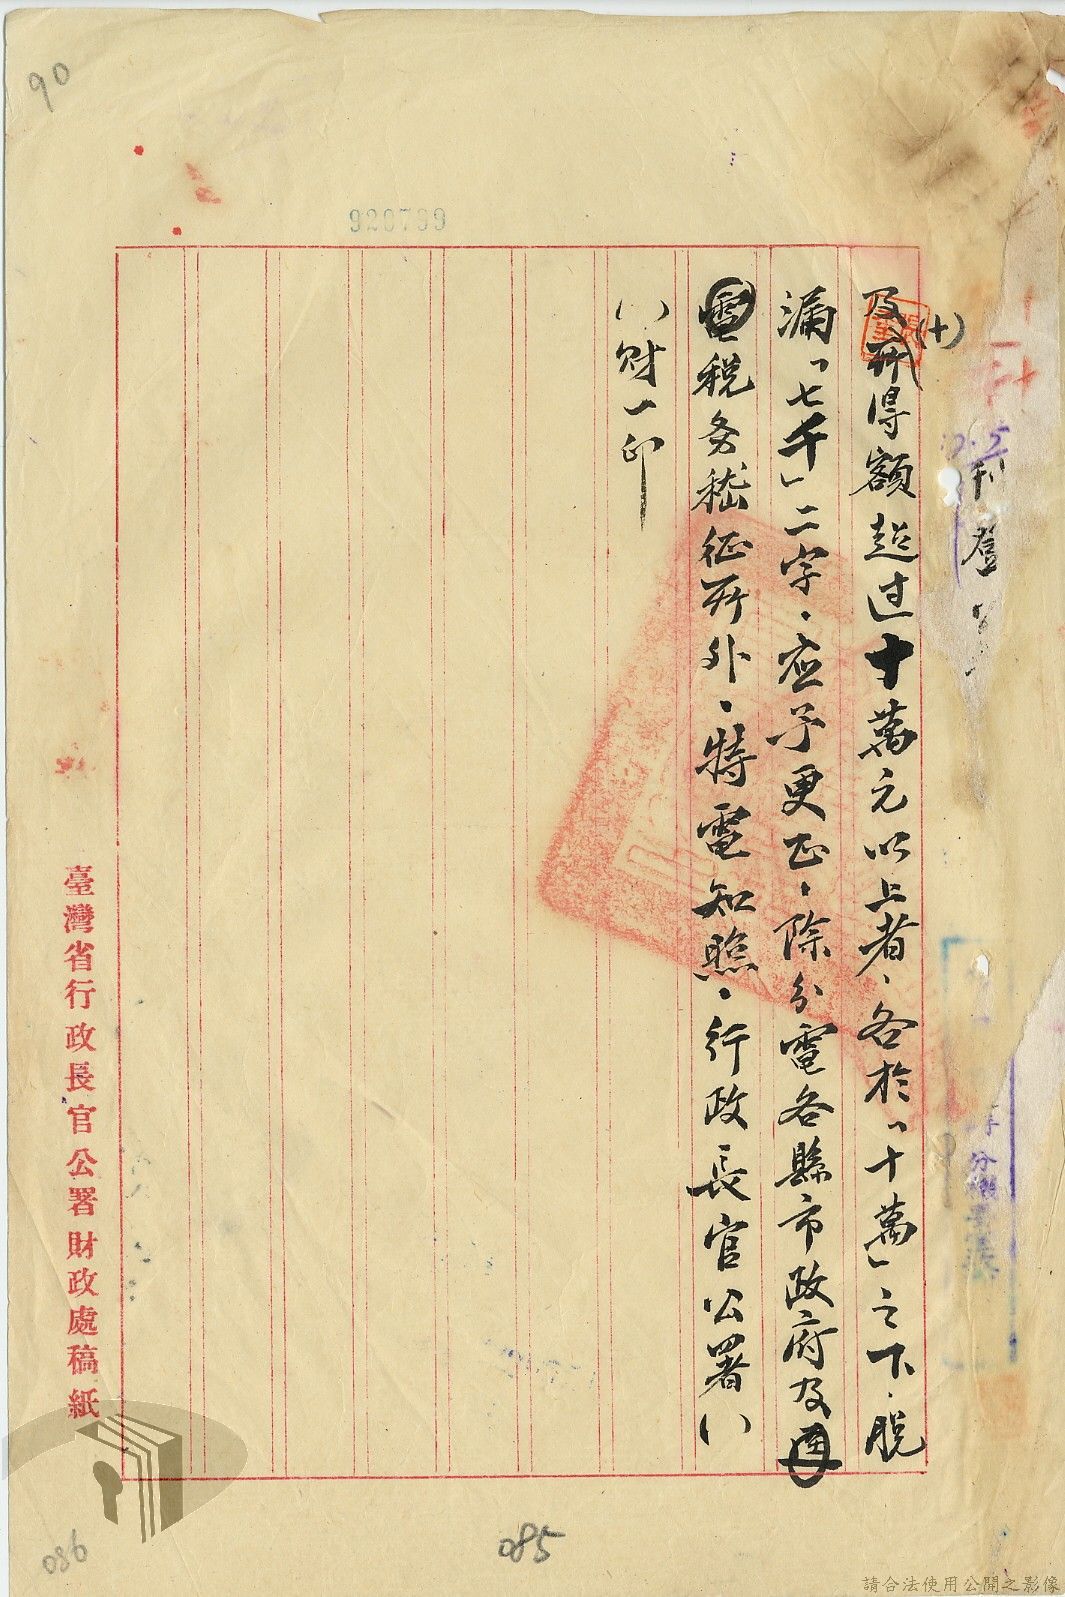 90
920799
刊登
(十)
及所得額超过十萬元以上者、各於「十萬」之下、脫
漏「七千」二字、应予更正、除分電各縣市政府及
稅务稽征所外、特電知照、行政長官公署()
()財一印
臺灣省行政長官公署財政處稿紙
085
086
請合法使用公開之影像